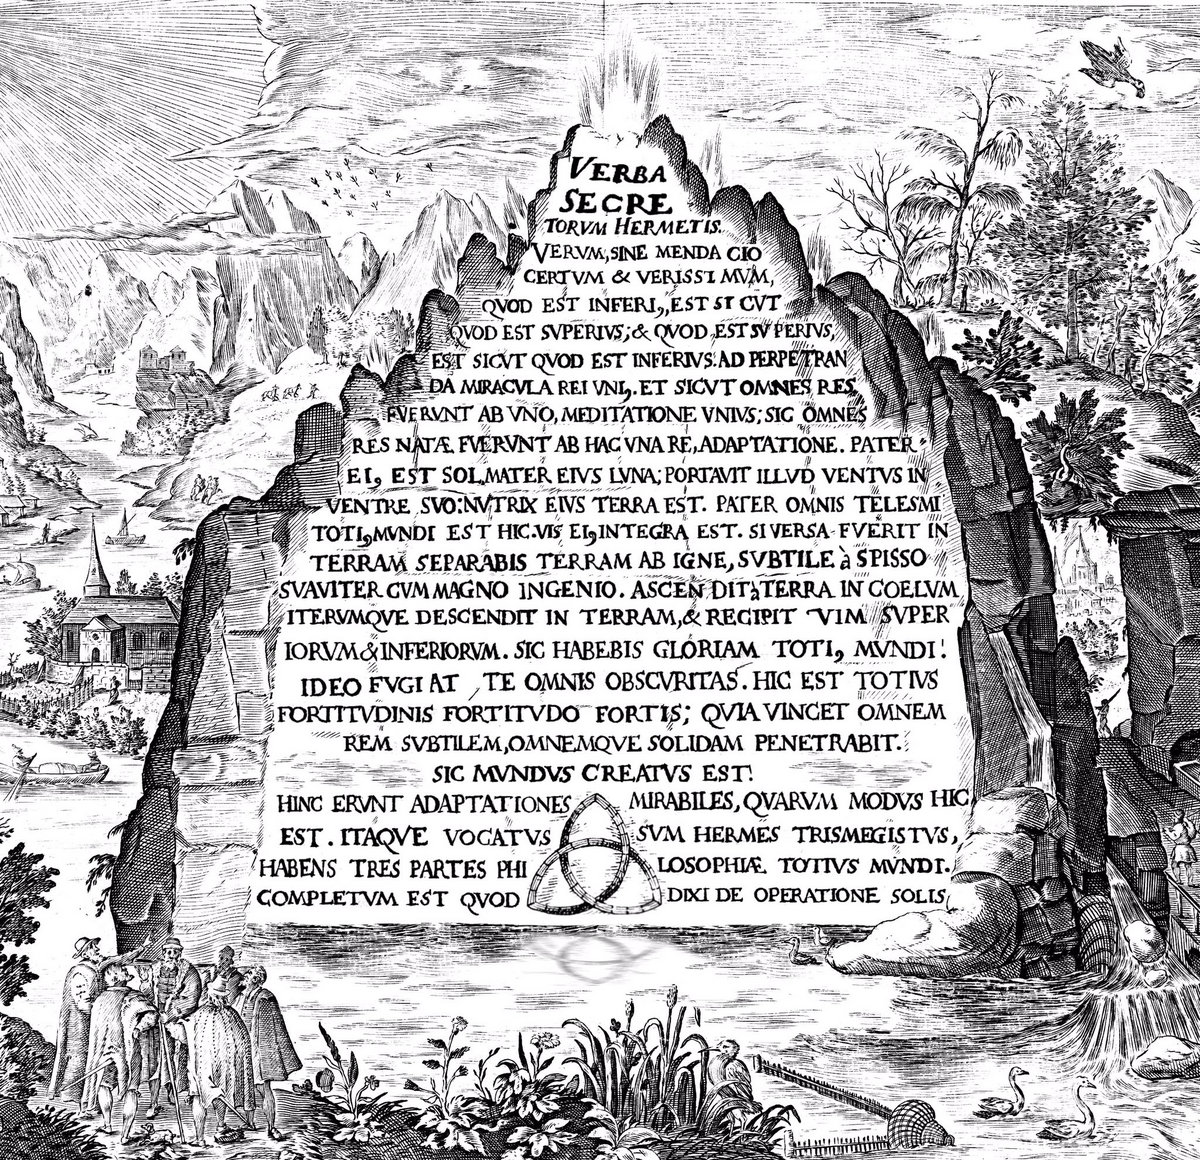 VERBA
SECRE
TORVM HERMETIS.
VERVM, SINE MENDA CIO
CERTVM & VERISSIMVM,
QUOD EST INFERI,, EST SICUT
QUOD EST SVPERIVS; & QVOD EST SVPERIVS,
EST SICVT QVOD EST INFERIVS. AD PERPETRAN
DA MIRACVLA REI VNI,. ET SICVT OMNES RES
FVERVNT AB VNO, MEDITATIONE VNIVS; SIC OMNES
RES NATÆ FVERVNT AB HAC VNA RE, ADAPTATIONE. PATER
EI, EST SOL, MATER EIVS LVNA; PORTAVIT ILLVD VENTVS IN
VENTRE SVO: NVTRIX EIVS TERRA EST. PATER OMNIS TELESMI
TOTI, MVNDI EST HIC. VIS EI, INTEGRA EST. SI VERSA FVERIT IN
TERRAM SEPARABIS TERRAM AB IGNE, SVBTILE à SPISSO
SVAVITER CVM MAGNO INGENIO. ASCENDIT à TERRA IN COELVM
ITERVMQVE DESCENDIT IN TERRAM, & RECIPIT VIM SVPER
IORVM & INFERIORVM. SIC HABEBIS GLORIAM TOTI, MVNDI.
IDEO FUGIAT TE OMNIS OBSCVRITAS. HIC EST TOTIVS
FORTITVDINIS FORTITVDO FORTIS; QVIA VINCET OMNEM
REM SVBTILEM, OMNEMQVE SOLIDAM PENETRABIT.
SIC MVNDVS CREATVS EST.
HINC ERVNT ADAPTATIONES MIRABILES, QVARVM MODVS HIC
EST. ITAQVE VOCATVS SVM HERMES TRISMEGISTVS,
HABENS TRES PARTES PHI LOSOPHIÆ TOTIVS MVNDI.
COMPLETVM EST QVOD DIXI DE OPERATIONE SOLIS